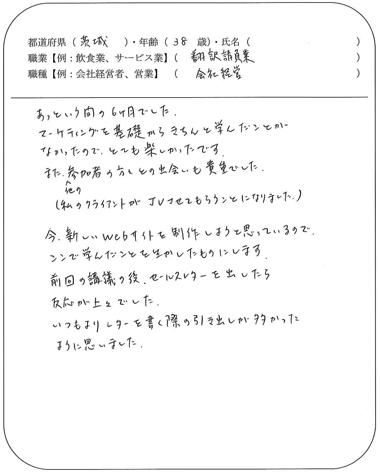 都道府県（茨城　）・年齢（38　歳）・氏名（　　　）
職業【例：飲食業、サービス業】（　翻訳請負業　）
職種【例：会社経営者、営業】（　会社経営　）
あっという間の6ヶ月でした。
マーケティングを基礎からきちんと学んだことが
なかったので、とても楽しかったです。
また、参加者の方々との出会いも貴重でした。
他の
（私のクライアントがJVさせてもらうことになりました。）
今、新しいWebサイトを制作しようと思っているので、
ここで学んだことを生かしたものにします。
前回の講議の後、セールスレターを出したら
反応が上々でした。
いつもよりレターを書く際の引き出しが多かった
ように思いました。